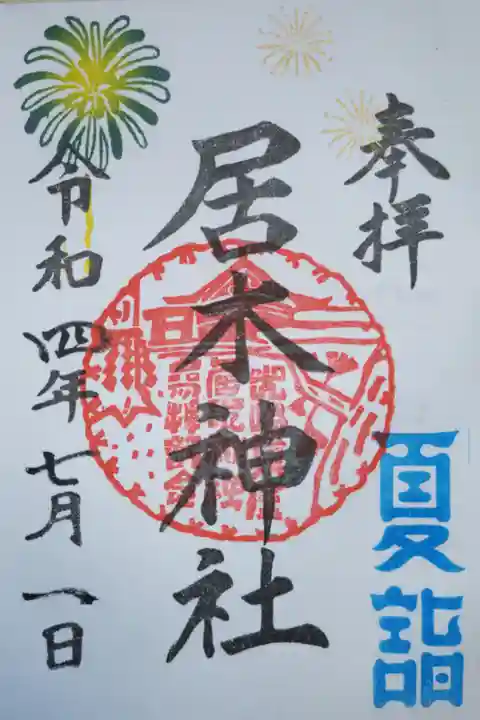 奉拝
夏詣
居木神社
令和四年七月一日